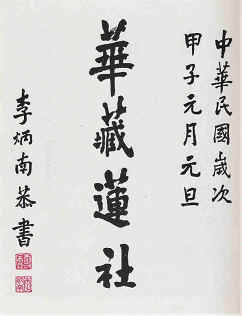 中華民國歲次
甲子元月元旦
華藏蓮社
李炳南恭書